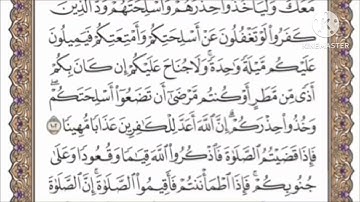 مَعَكَ وَلْيَأْخُذُوا حِذْرَهُمْ وَأَسْلِحَتَهُمْ وَدَّ الَّذِينَ
كَفَرُوا لَوْ تَغْفُلُونَ عَنْ أَسْلِحَتِكُمْ وَأَمْتِعَتِكُمْ فَيَمِيلُونَ
عَلَيْكُم مَّيْلَةً وَاحِدَةً وَلَا جُنَاحَ عَلَيْكُمْ إِن كَانَ بِكُمْ
أَذًى مِّن مَّطَرٍ أَوْ كُنتُم مَّرْضَىٰ أَن تَضَعُوا أَسْلِحَتَكُمْ
وَخُذُوا حِذْرَكُمْ إِنَّ اللَّهَ أَعَدَّ لِلْكَافِرِينَ عَذَابًا مُّهِينًا ١٠٢
فَإِذَا قَضَيْتُمُ الصَّلَوٰةَ فَاذْكُرُوا اللَّهَ قِيَامًا وَقُعُودًا وَعَلَىٰ
جُنُوبِكُمْ فَإِذَا اطْمَأْنَنتُمْ فَأَقِيمُوا الصَّلَوٰةَ إِنَّ الصَّلَوٰةَ
KINEMASTER